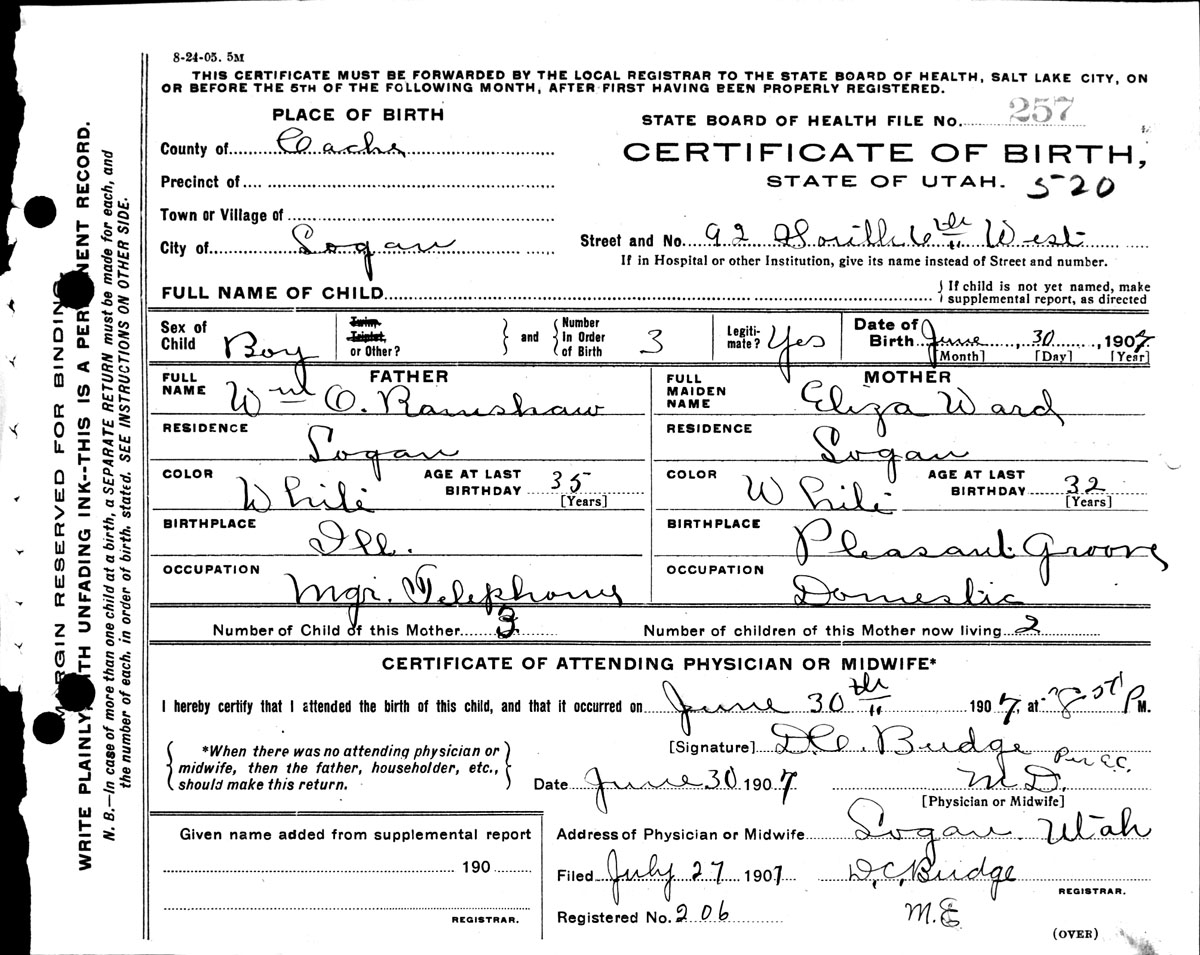 8-24-05. 5M
THIS CERTIFICATE MUST BE FORWARDED BY THE LOCAL REGISTRAR TO THE STATE BOARD OF HEALTH, SALT LAKE CITY, ON
OR BEFORE THE 5TH OF THE FOLLOWING MONTH, AFTER FIRST HAVING BEEN PROPERLY REGISTERED.
PLACE OF BIRTH
STATE BOARD OF HEALTH FILE No. 257
County of Cache
CERTIFICATE OF BIRTH,
Precinct of
STATE OF UTAH. 520
Town or Village of
City of Logan
Street and No. 92 South 6th West
If in Hospital or other Institution, give its name instead of Street and number.
FULL NAME OF CHILD
If child is not yet named, make
supplemental report, as directed
Sex of Child Boy
Twin, Triplet, or Other?
and
Number In Order of Birth 3
Legitimate? Yes
Date of Birth June 30, 1907
[Month] [Day] [Year]
FATHER
FULL NAME Wm O. Ramshaw
RESIDENCE
Logan
COLOR White
AGE AT LAST BIRTHDAY 35
[Years]
BIRTHPLACE
Ill.
OCCUPATION
Mgr. Telephone
MOTHER
FULL MAIDEN NAME Eliza Ward
RESIDENCE
Logan
COLOR White
AGE AT LAST BIRTHDAY 32
[Years]
BIRTHPLACE
Pleasant Grove
OCCUPATION
Domestic
Number of Child of this Mother 3
Number of children of this Mother now living 2
CERTIFICATE OF ATTENDING PHYSICIAN OR MIDWIFE*
I hereby certify that I attended the birth of this child, and that it occurred on June 30th 1907, at P M.
*When there was no attending physician or
midwife, then the father, householder, etc.,
should make this return.
[Signature] D.C. Budge
Per C.C.
Date June 30 1907 M.D.
[Physician or Midwife]
Given name added from supplemental report
190
REGISTRAR.
Address of Physician or Midwife Logan Utah
Filed July 27 1907 D.C. Budge
REGISTRAR.
Registered No. 206
(OVER)
MARGIN RESERVED FOR BINDING
WRITE PLAINLY, WITH UNFADING INK--THIS IS A PERMANENT RECORD.
N. B.—In case of more than one child at a birth, a SEPARATE RETURN must be made for each, and
the number of each, in order of birth, stated. SEE INSTRUCTIONS ON OTHER SIDE.